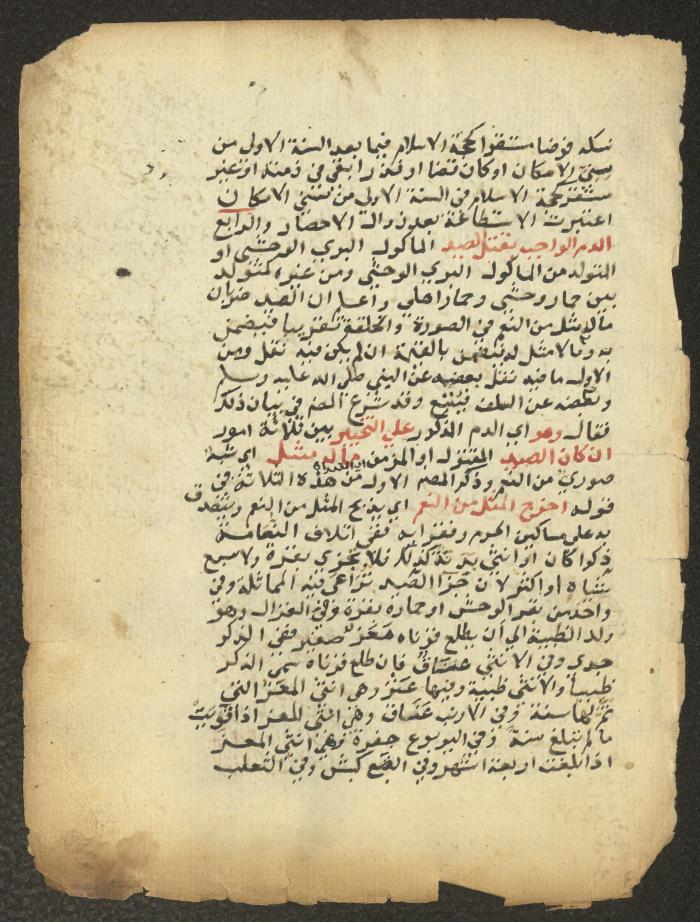 نسكه فرضا مستقرا كحجة الاسلام فيما بعد السنة الاولى من
سني الامكان او كان قضا او نذرا بقي في ذمته او غير
مستقر كحجة الاسلام في السنة الاولى من سني الامكان
اعتبرت الاستطاعة بعد زوال الاحصار والرابع
الدم الواجب بقتل الصيد الماكول البري الوحشي او
المتولد من الماكول البري الوحشي ومن غيره كمتولد
بين حمار وحشي وحمار اهلي واعلم ان الصيد ضربان
ماله مثل من النعم في الصورة والخلقة تقريبا فيضمن
به وما لا مثل له فيضمن بالقيمة ان لم يكن فيه نقل ومن
الاول ما فيه نقل بعضه عن النبي صلى الله عليه وسلم
وبعضه عن السلف فيتبع وقد شرع المص في بيان ذلك
فقال وهو اي الدم المذكور علي التخيير بين ثلاثة امور
ان كان الصيد المقتول او المزمن مما له مثل اي شبه
صوري من النعم وذكر المص الاول من هذه الثلاثة في
قوله اخرج المثل من النعم اي يذبح المثل من النعم ويتصدق
به علي مساكين الحرم وفقرايه ففي اتلاف النعامة
ذكرا كان او انثي بدنة كذلك فلا تجزي بقرة ولا سبع
شياه او اكثر لان جزا الصيد تراعى فيه المماثلة وفي
واحد من بقر الوحش او حماره بقرة وفي الغزال وهو
ولد الظبية الي ان يطلع قرناه معز صغير ففي الذكر
جدي وفي الانثي عناق فان طلع قرناه سمي الذكر
ظبيا والانثي ظبية وفيها عنز وهي انثي المعز التي
تم لها سنة وفي الارنب عناق وهي انثي المعز اذا قويت
ما لم تبلغ سنة وفي اليربوع جفرة وهي انثي المعز
اذا بلغت اربعة اشهر وفي الضبع كبش وفي الثعلب